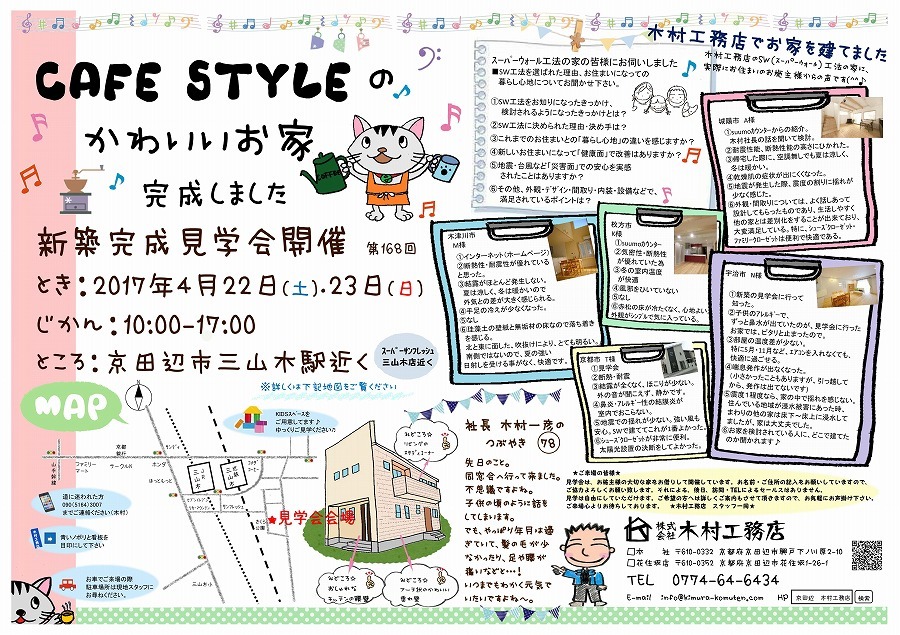 CAFE STYLEの
かわいいお家
完成しました
新築完成見学会開催 第168回
とき：2017年4月22日(土).23日(日)
じかん：10:00-17:00
ところ：京田辺市三山木駅近く
スーパーサンフレッシュ
三山木店近く
※詳しくは下記地図をご覧ください
MAP
KIDSスペースを
ご用意してます♪
ゆっくりご見学ください♪
山手幹線
ファミリーマート
サークルK
ホンダ
サンディ
JR三山木
近鉄三山木
サンフレッシュ
さくら公園
三山木小
★見学会会場
道に迷われた方
090(5164)3007
までご連絡ください(木村)
青いノボリと看板を
目印にして下さい
お車でご来場の際
駐車場所は現地スタッフに
お尋ねください。
木村工務店でお家を建てました
木村工務店のSW(スーパーウォール)工法の家に、
実際にお住まいのお施主様からの声です(^^♪
スーパーウォール工法の家の皆様にお伺いしました
■SW工法を選ばれた理由、お住まいになっての
暮らし心地についてお聞かせ下さい。
①SW工法をお知りになったきっかけ、
検討されるようになったきっかけとは？
②SW工法に決められた理由・決め手は？
③これまでのお住まいとの「暮らし心地」の違いを感じますか？
④新しいお住まいになって「健康面」で改善はありますか？
⑤地震・台風など「災害面」での安心を実感
されたことはありますか？
⑥その他、外観・デザイン・間取り・内装・設備などで、
満足されているポイントは？
城陽市 A様
①suumoカウンターからの紹介。
木村社長の話を聞いて検討。
②耐震性能、断熱性能の高さにひかれた。
③帰宅した際に、空調無しでも夏は涼しく、
冬は暖かい。
④乾燥肌の症状が出にくくなった。
⑤地震が発生した際、震度の割りに揺れが
少なく感じた。
⑥外観・間取りについては、よく話しあって
設計してもらったものであり、生活しやすく
他の家とは差別化をすることが出来ており、
大変満足している。特に、シューズクローゼット・
ファミリークローゼットは便利で快適である。
木津川市
M様
①インターネット(ホームページ)
②断熱性・耐震性が優れている
と思った。
③結露がほとんど発生しない。
夏は涼しく、冬は暖かいので
外気との差が大きく感じられる。
④手足の冷えが少なくなった。
⑤なし
⑥珪藻土の壁紙と無垢材の床なので落ち着き
を感じる。
北と東に面した、吹抜けにより、とても明るい。
南側ではないので、夏の強い
日射しを受ける事がなく、快適です。
枚方市
K様
①suumoカウンター
②気密性・断熱性
が優れていた為
③冬の室内温度
が快適
④風邪をひいていない
⑤なし
⑥赤松の床が冷たくなく、心地よい
外観がシンプルで気に入っている。
京都市 T様
①見学会
②断熱・耐震
③結露が全くなく、ほこりが少ない。
外の音が聞こえず、静かです。
④鼻炎・アレルギー性の結膜炎が
室内でおこらない。
⑤地震での揺れが少ない。強い風も
安心。SWで建ててこれが1番よかった。
⑥シューズクロゼットが非常に便利。
太陽光設置の決断をしてよかった。
宇治市 N様
①新築の見学会に行って
知った。
②子供のアレルギーで、
ずっと鼻水が出ていたのが、見学会に行った
お家では、ピタリと止まったので。
③部屋の温度差が少ない。
特に5月・11月など、エアコンを入れなくても、
快適に過ごせる。
④喘息発作が出なくなった。
(小さかったこともありますが、引っ越して
から、発作は出てないです)
⑤震度1程度なら、家の中で揺れを感じない。
住んでいる地域が浸水被害にあった時、
まわりの他の家は床下～床上に浸水して
ましたが、家は大丈夫でした。
⑥お家を検討されている人に、どこで建てた
のか聞かれます♪
社長 木村一彦の
つぶやき 78
先日のこと。
同窓会へ行って来ました。
不思議ですよね。
子供の頃のように話を
してしまいます。
でも、やっぱり年月は過
ぎていて、髪の毛が少
なかったり、足や腰が
痛いなどで…！
いつまでもわかく元気で
いたいですよね～。
みどころ☆
リビングの
スタディコーナー
みどころ☆
おしゃれな
キッチンの腰壁
みどころ☆
アーチ状のかわいい
垂れ壁
★ご来場の皆様★
見学会は、お施主様の大切な家をお借りして開催しています。お名前・ご住所の記入をお願いしていますので、
ご協力よろしくお願い致します。それによる、後日、訪問・TELによるセールスはありません。
見学は自由にしていただけます。ご希望の方へは詳しくご案内もさせて頂きますので、お気軽にお声掛け下さい。
ご来場心よりお待ちしております。 ★木村工務店 スタッフ一同★
株式会社木村工務店
□本 社 〒610-0332 京都府京田辺市興戸下ノ川原2-10
□花住坂店 〒610-0352 京都府京田辺市花住坂1-26-1
TEL 0774-64-6434
E-mail info@kimura-komuten.com HP 京田辺 木村工務店 検索